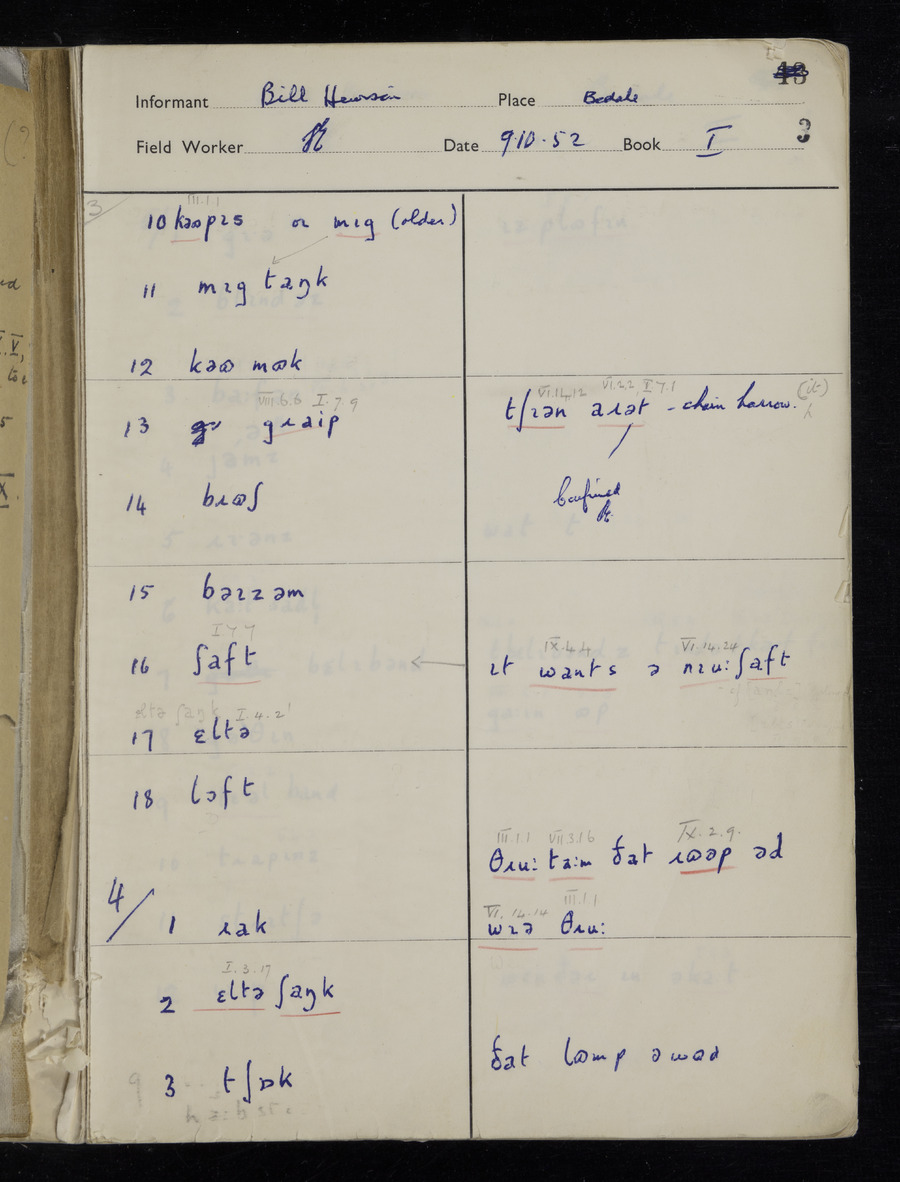 Informant Bill Place Bedale
3
Field Worker Date 9.10.52 Book I
III.1.1
3/
10 kəʊpɪs or mɪg (older)
11 mɪg taŋk
12 kəʊ mʊk
VIII.6.6 I.7.9
13 gɹaip
VI.14.12 VI.2.2, I.7.1
tʃɪən aɹət - chain harrow.
14 bɹʊʃ
Confirmed
15 bəɪzəm
I.7.7
16 ʃaft
IX.4.4 VI.14.24
ɪt wants ə nɪu: ʃaft
ɛltə ʃaŋk I.4.2
17 ɛltə
18 lɔft
III.1.1 VII.3.16 IX.2.9.
θɹu: ta:m ðat ɹʊəp əd
4/
1 ɹak
VI.14.14 III.1.1
wɪə θɹu:
I.3.17
2 ɛltə ʃaŋk
ðat lʊmp əwad
3 tʃɒk